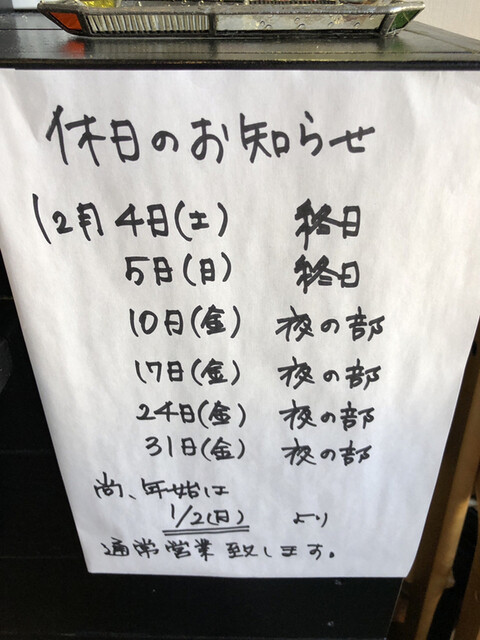 休日のお知らせ
12月4日(土) 終日
5日(日) 終日
10日(金) 夜の部
17日(金) 夜の部
24日(金) 夜の部
31日(金) 夜の部
尚、年始は
1/2(日) より
通常営業致します。